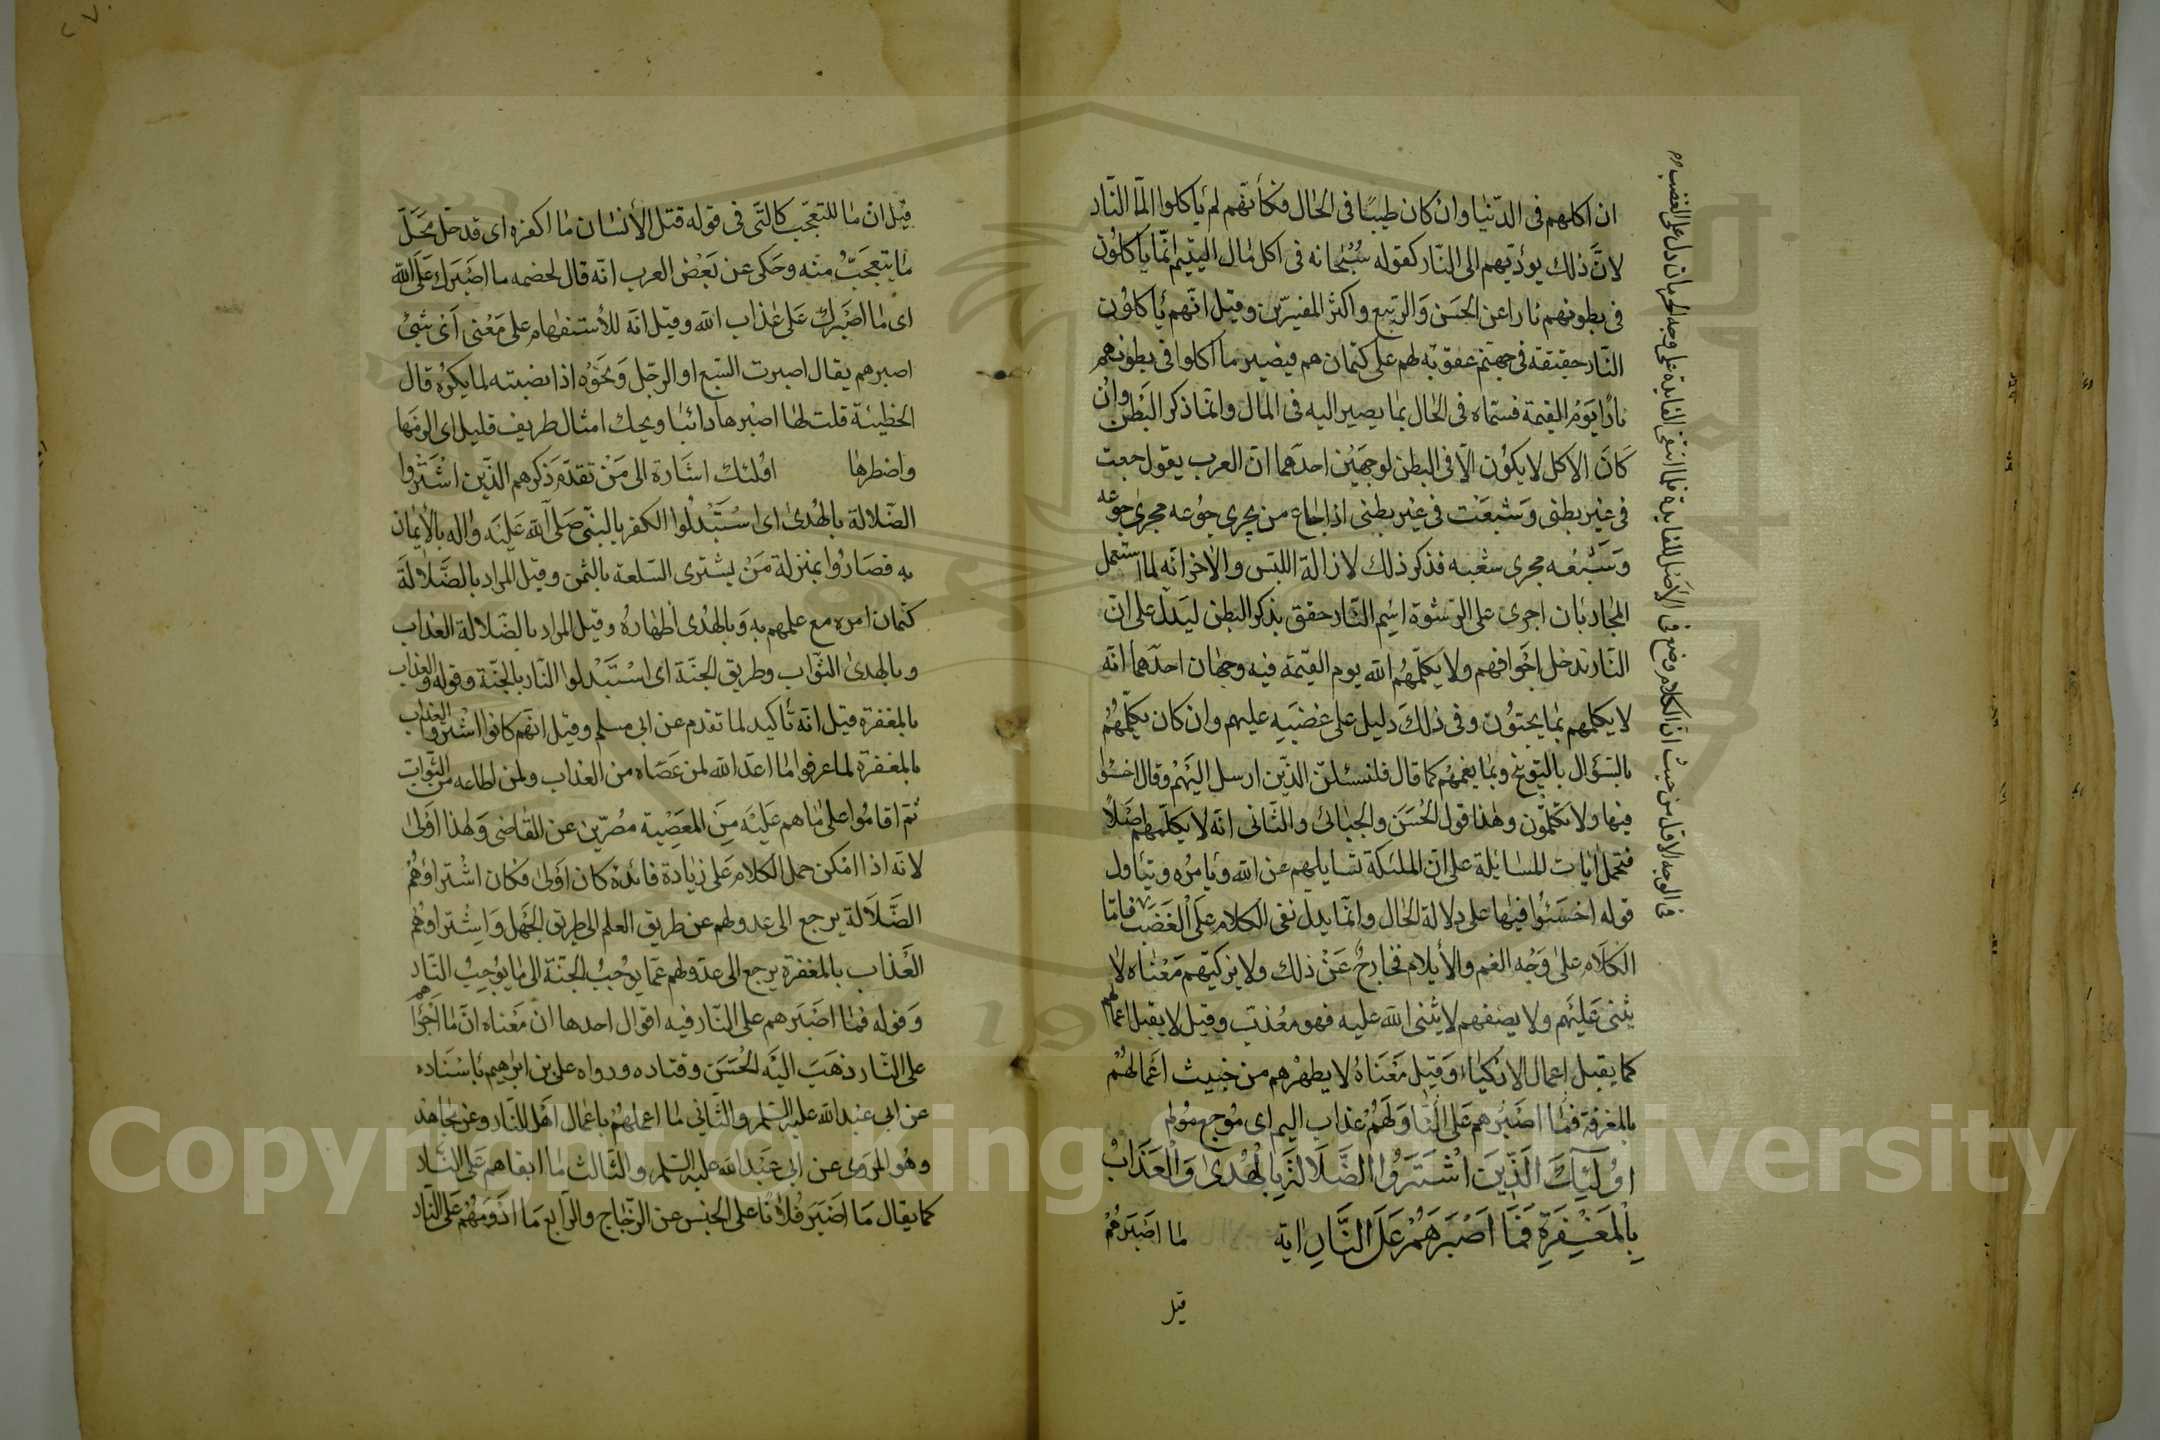 ان اكلهم فى الدّنيا وان كان طيبًا فى الحال فكأنّهم لم ياكلوا الّا النّار
لانّ ذلك يودّيهم الى النّار كقوله سبحانه فى اكل مال اليتيم انّما ياكلون
فى بطونهم نارا عن الحسن والربيع واكثر المفسّرين وقيل انّهم ياكلون
النّار حقيقة فى جهنّم عقوبة لهم على كتمانهم فيصير ما اكلوا فى بطونهم
نارًا يوم القيمة فسمّاه فى الحال بما يصير اليه فى المال وانّما ذكر البطن وان
كان الاكل لا يكون الّا فى البطن لوجهين احدهما ان العرب يقول جعت
فى غير بطنى وشبعت فى غير بطنى اذا جاع من يجرى جوعه مجرى جوعه
وشبعه مجرى شبعه فذكر ذلك لازالة اللبس والاخر انّه لما استعمل
المجاز بان اجرى على الرّشوة اسم النّار حقق بذكر البطن ليدلّ على انّ
النّار تدخل اجوافهم ولا يكلّمهم الله يوم القيمة فيه وجهان احدهما انّه
لا يكلمهم بما يحبّون وفى ذلك دليل على غضبه عليهم وان كان يكلّمهم
بالسؤال بالتّوبيخ وبما يغمهم كما قال فلنسئلنّ الّذين ارسل اليهم وقال اخسئوا
فيها ولا تكلّمون وهذا قول الحسن والجبائى والثّانى انّه لا يكلّمهم اصلًا
فتحمل ايات المسايلة على انّ الملئكة تسايلهم عن الله وبامره ويتاول
قوله اخسئوا فيها على دلالة الحال وانّما يدل نفى الكلام على الغضب فامّا
الكلام على وجه الغم والايلام فخارج عن ذلك ولا يزكّيهم معناه لا
يثنى عليهم ولا يصفهم لا يثنى الله عليه فهو معذب وقيل لا يقبل اعمالهم
كما يقبل اعمال الازكياء وقيل معناه لا يطهرهم من خبيث اعمالهم
بالمغفرة فما اصبرهم على النّار ولهم عذاب اليم اى موجع مولم
اولئك الّذين اشتروا الضّلالة بالهدى والعذاب
بالمغفرة فما اصبرهم على النّار اية ما اصبرهم
قيل
فى الوجه الاوّل من حيث انّ الكلام وضع فى الاصل للفايدة فلما انتفى الفايدة على وجه الحرمان دل على الغضب
قيل انّ ما للتعجّب كالّتى فى قوله قتل الانسان ما اكفره اى قد حلّ محلّ
ما يتعجّب منه وحكى عن بعض العرب انّه قال لخصمه ما اصبرك على الله
اى ما اصبرك على عذاب الله وقيل انّه للاستفهام على معنى اى شئ
اصبرهم يقال اصبرت السّبع او الرجل ونحوه اذا نصبته لما يكره قال
الحطيئة قلت لها اصبرها دائبا ويحك امثال طريف قليل اى الزمها
واضطرها اولئك اشارة الى من تقدّم ذكرهم الّذين اشتروا
الضّلالة بالهدى اى استبدلوا الكفر بالنبى صلى الله عليه واله بالايمان
به فصاروا بمنزلة من يشترى السّلعة بالثمن وقيل المراد بالضّلالة
كتمان امره مع علمهم به وبالهدى اظهاره وقيل المراد بالضلالة العذاب
وبالهدى الثواب وطريق الجنّة اى استبدلوا النّار بالجنّة وقوله والعذاب
بالمغفرة قيل انّه تاكيد لما تقدم عن ابى مسلم وقيل انّهم كانوا اشتروا العذاب
بالمغفرة لما عرفوا ما اعدّ الله لمن عصاه من العذاب ولمن اطاعه من الثواب
ثم اقاموا على ما هم عليه من المعصية مصرّين عن القاضى وهذا اولى
لانّه اذا امكن حمل الكلام على زيادة فائدة كان اولى فكان اشتراؤهم
الضّلالة يرجع الى عدولهم عن طريق العلم الى طريق الجهل واشتراؤهم
العذاب بالمغفرة يرجع الى عدولهم عمّا يوجب الجنّة الى ما يوجب النّار
وقوله فما اصبرهم على النّار فيه اقوال احدها انّ معناه انّ ما اجراهم
على النّار ذهب اليه الحسن وقتاده ورواه على بن ابرهيم باسناده
عن ابى عبد الله عليه السّلم والثّانى ما اعملهم باعمال اهل النّار عن مجاهد
وهو المروى عن ابى عبد الله عليه السّلم والثّالث ما ابقاهم على النّار
كما يقال ما اصبر فلانًا على الحبس عن الزّجاج والرّابع ما ادومهم على النّار
Copyright © King Saud University